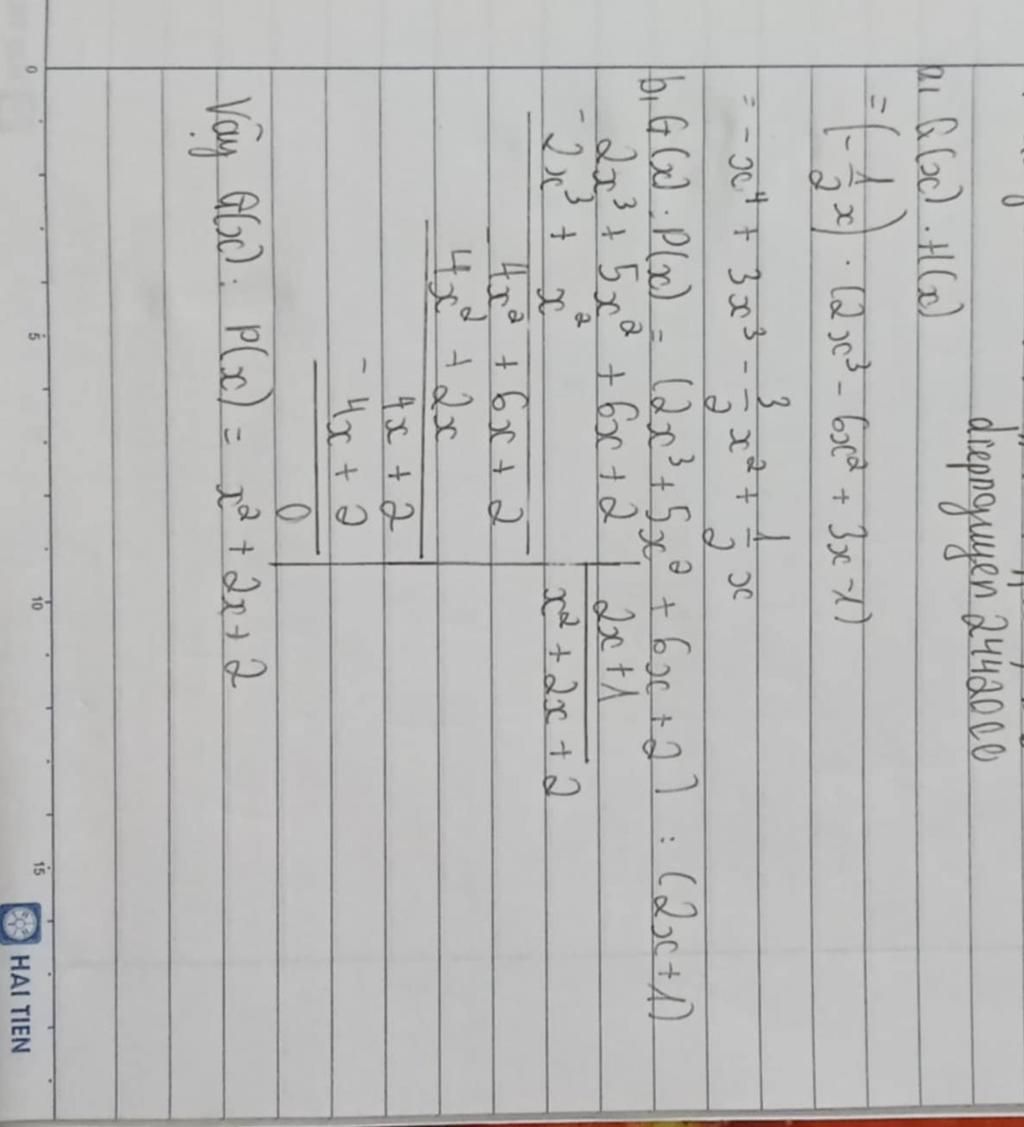 diepnguyen2442000
a, Q(x) . H(x)
= (-1/2 x) . (2x³ - 6x² + 3x - 1)
= - x⁴ + 3x³ - 3/2 x² + 1/2 x
b, G(x) : P(x) = (2x³ + 5x² + 6x + 2) : (2x + 1)
2x³ + 5x² + 6x + 2 | 2x + 1
- 2x³ + x² | x² + 2x + 2
4x² + 6x + 2
4x² + 2x
4x + 2
- 4x + 2
0
Vậy G(x) : P(x) = x² + 2x + 2
0 5 10 15
HAI TIEN